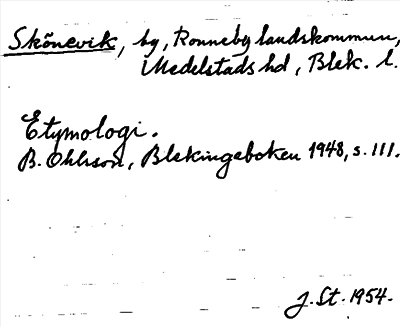 Skönevik, by, Ronneby landskommun,
Medelstads hd, Blek. l.
Etymologi.
B. Ohlsson, Blekingeboken 1948, s. 111.
J. St. 1954.